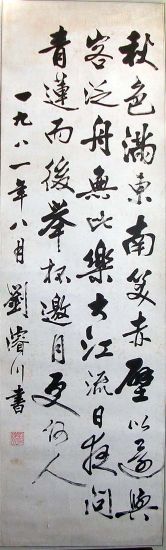 秋色滿東南赤壁以與
客泛舟無此樂大江流日夜問
青蓮而後舉杯邀月更何人
一九八一年八月 劉濬川書